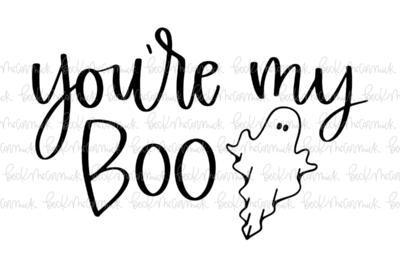 you're my
BOO